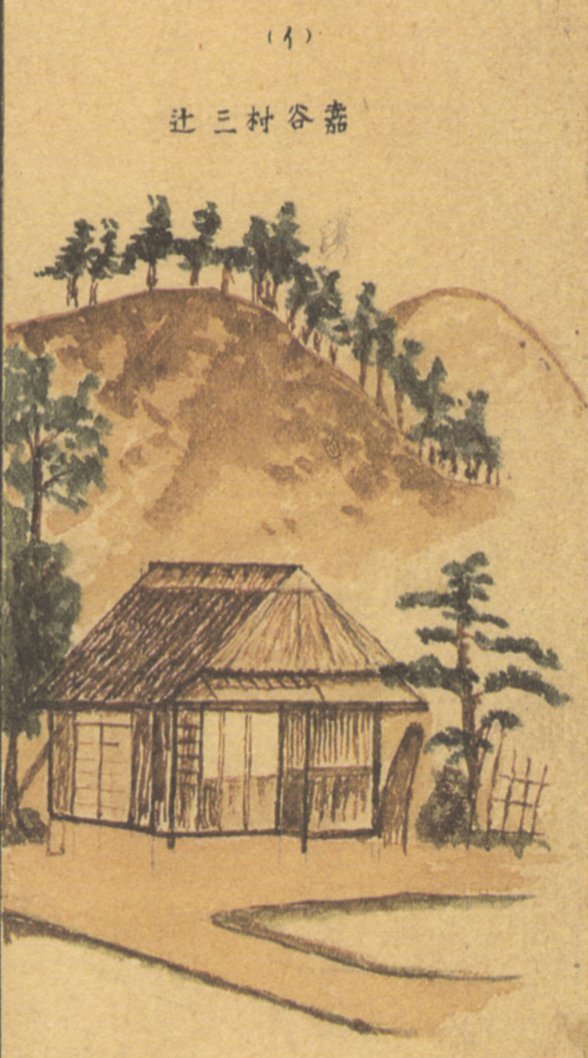 (イ)
嘉谷村三辻